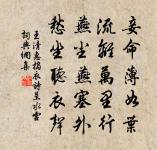 妾命薄如葉
流離萬里行
燕塵燕塞外
愁坐聽衣聲
王清惠擣衣詩呈水雲
詞典網集